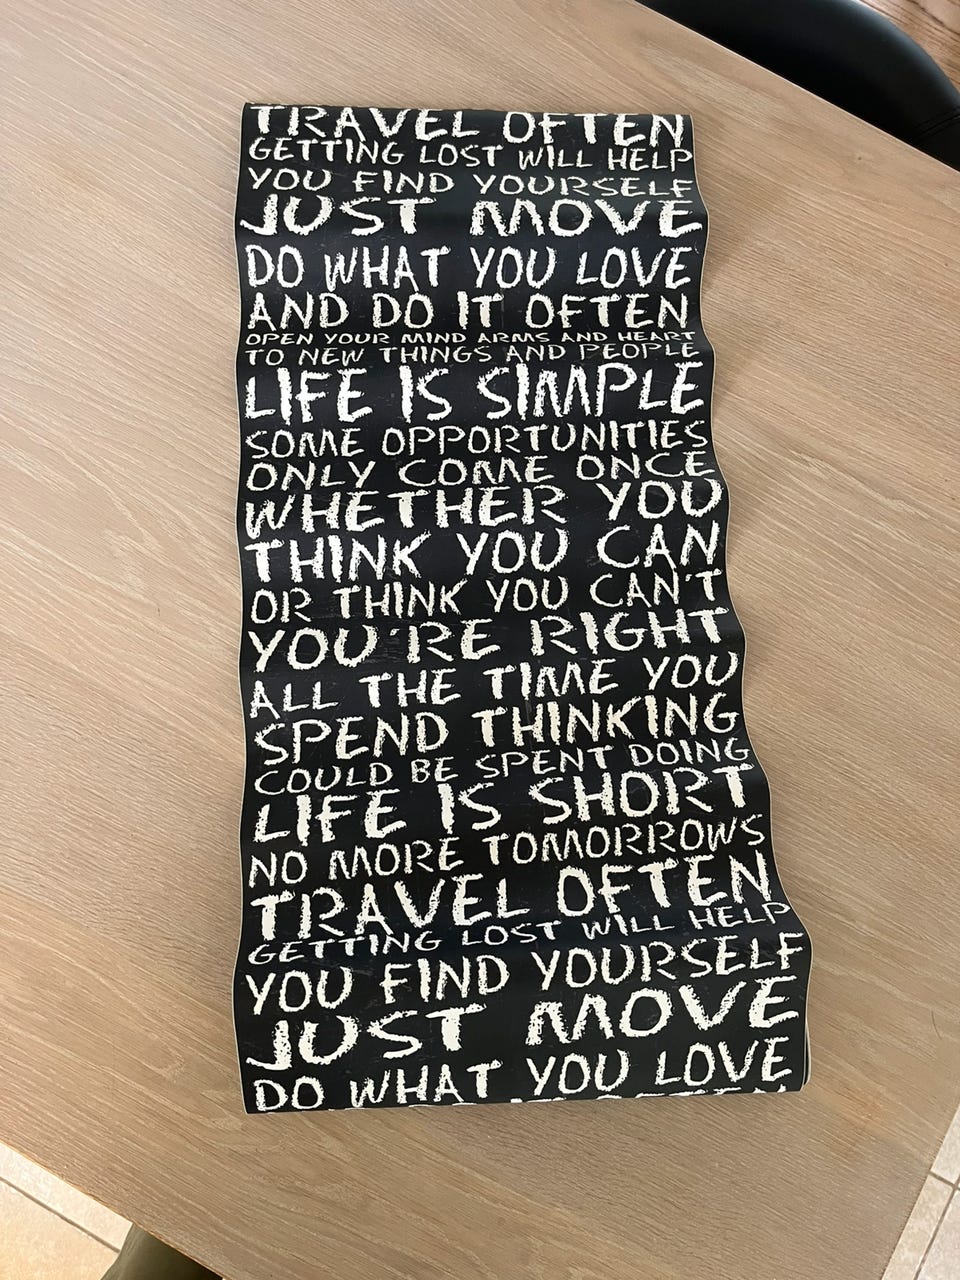 TRAVEL OFTEN
GETTING LOST WILL HELP
YOU FIND YOURSELF
JUST MOVE
DO WHAT YOU LOVE
AND DO IT OFTEN
OPEN YOUR MIND ARMS AND HEART
TO NEW THINGS AND PEOPLE
LIFE IS SIMPLE
SOME OPPORTUNITIES
ONLY COME ONCE
WHETHER YOU
THINK YOU CAN
OR THINK YOU CAN'T
YOU'RE RIGHT
ALL THE TIME YOU
SPEND THINKING
COULD BE SPENT DOING
LIFE IS SHORT
NO MORE TOMORROWS
TRAVEL OFTEN
GETTING LOST WILL HELP
YOU FIND YOURSELF
JUST MOVE
DO WHAT YOU LOVE